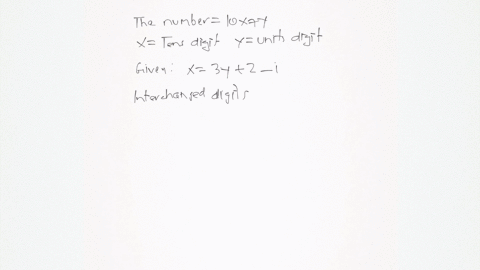 The number = 10x+y
x = Tens digit y = unit digit
Given: x = 3y + 2 — i
Interchanged digits